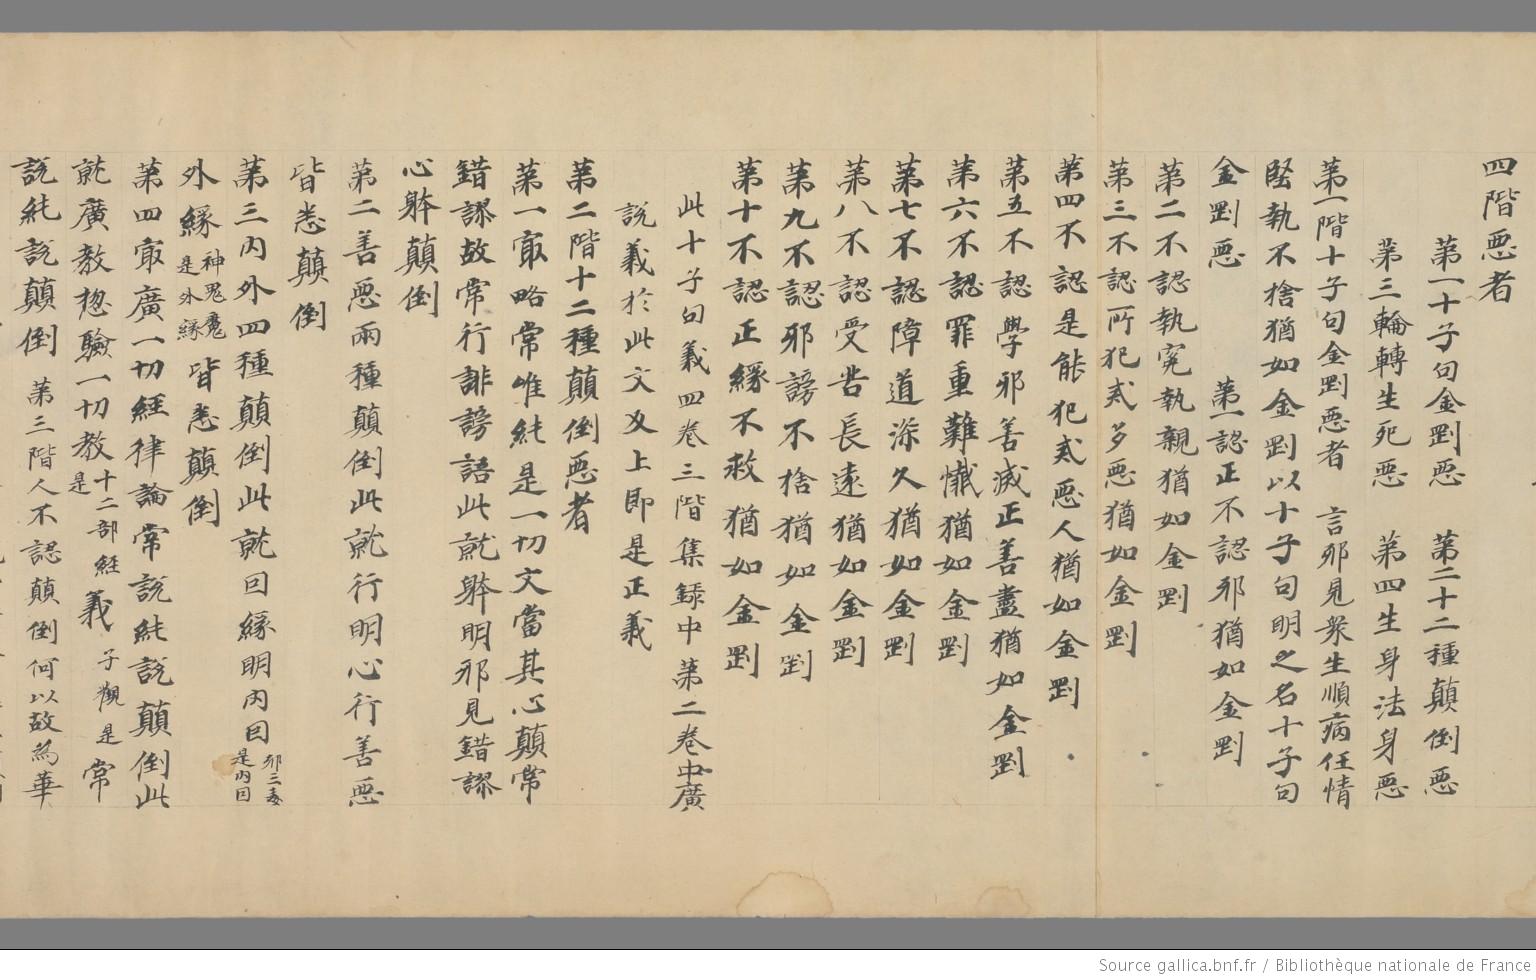 四階惡者
第一十子句金剛惡 第二十二種顛倒惡
第三輪轉生死惡 第四生身法身惡
第一階十子句金剛惡者 言邪見衆生順病任情
堅執不捨猶如金剛以十子句明之名十子句
金剛惡 第一認正不認邪猶如金剛
第二不認執寃執親猶如金剛
第三不認所犯貳多惡猶如金剛
第四不認是能犯貳惡人猶如金剛
第五不認學邪善滅正善盡猶如金剛
第六不認罪重難懺猶如金剛
第七不認障道深久猶如金剛
第八不認受苦長遠猶如金剛
第九不認邪謗不捨猶如金剛
第十不認正緣不救猶如金剛
此十子句義四卷三階集錄中第二卷中廣
說義於此文爻上即是正義
第二階十二種顛倒惡者
第一㝡略常唯純是一切文當其心顛常
錯謬故常行誹謗語此就躰明邪見錯謬
心躰顛倒
第二善惡兩種顛倒此就行明心行善惡
皆悉顛倒
第三內外四種顛倒此就因緣明內因邪三毒是內因
外緣神鬼魔是外緣皆悉顛倒
第四㝡廣一切經律論常說純說顛倒此
就廣教惣驗一切教十二部經是義子觀是常
說純說顛倒 第三階人不認顛倒何以故為華